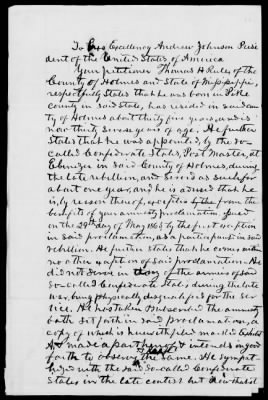 To His Excellency Andrew Johnson Presi
dent of the United States of America
Your petitioner Thomas H of the
County of Holmes and State of Mississippi,
respectfully States that he was born in Pike
county in said State, has resided in said coun
ty of Holmes about thirty five years, and is
now thirty seven years of age. He further
States that he was appointed by the so-
called Confederate States, Post Master, at
Ebenezer in said County of Holmes, during
the late rebellion, and served as such for
about one year, and he is advised that he
is, by reason thereof, excepted from the
benefits of your amnesty proclamation issued
on the 29th day of May 1865 by the first exception
in said proclamation, as a participant in said
rebellion. He further States that he comes within
no other exception of said proclamation. He
did not serve in any of the armies of said
So-called Confederate States during the late
war, being physically disqualified for the ser
vice. He has taken & Subscribed the amnesty
oath set forth in said proclamation, a
copy of which is herewith filed marked Exhibit
A & made a part hereof & intends in good
faith to observe the same. He sympat-
hized with the said So-called Confederate
States in the late contest but